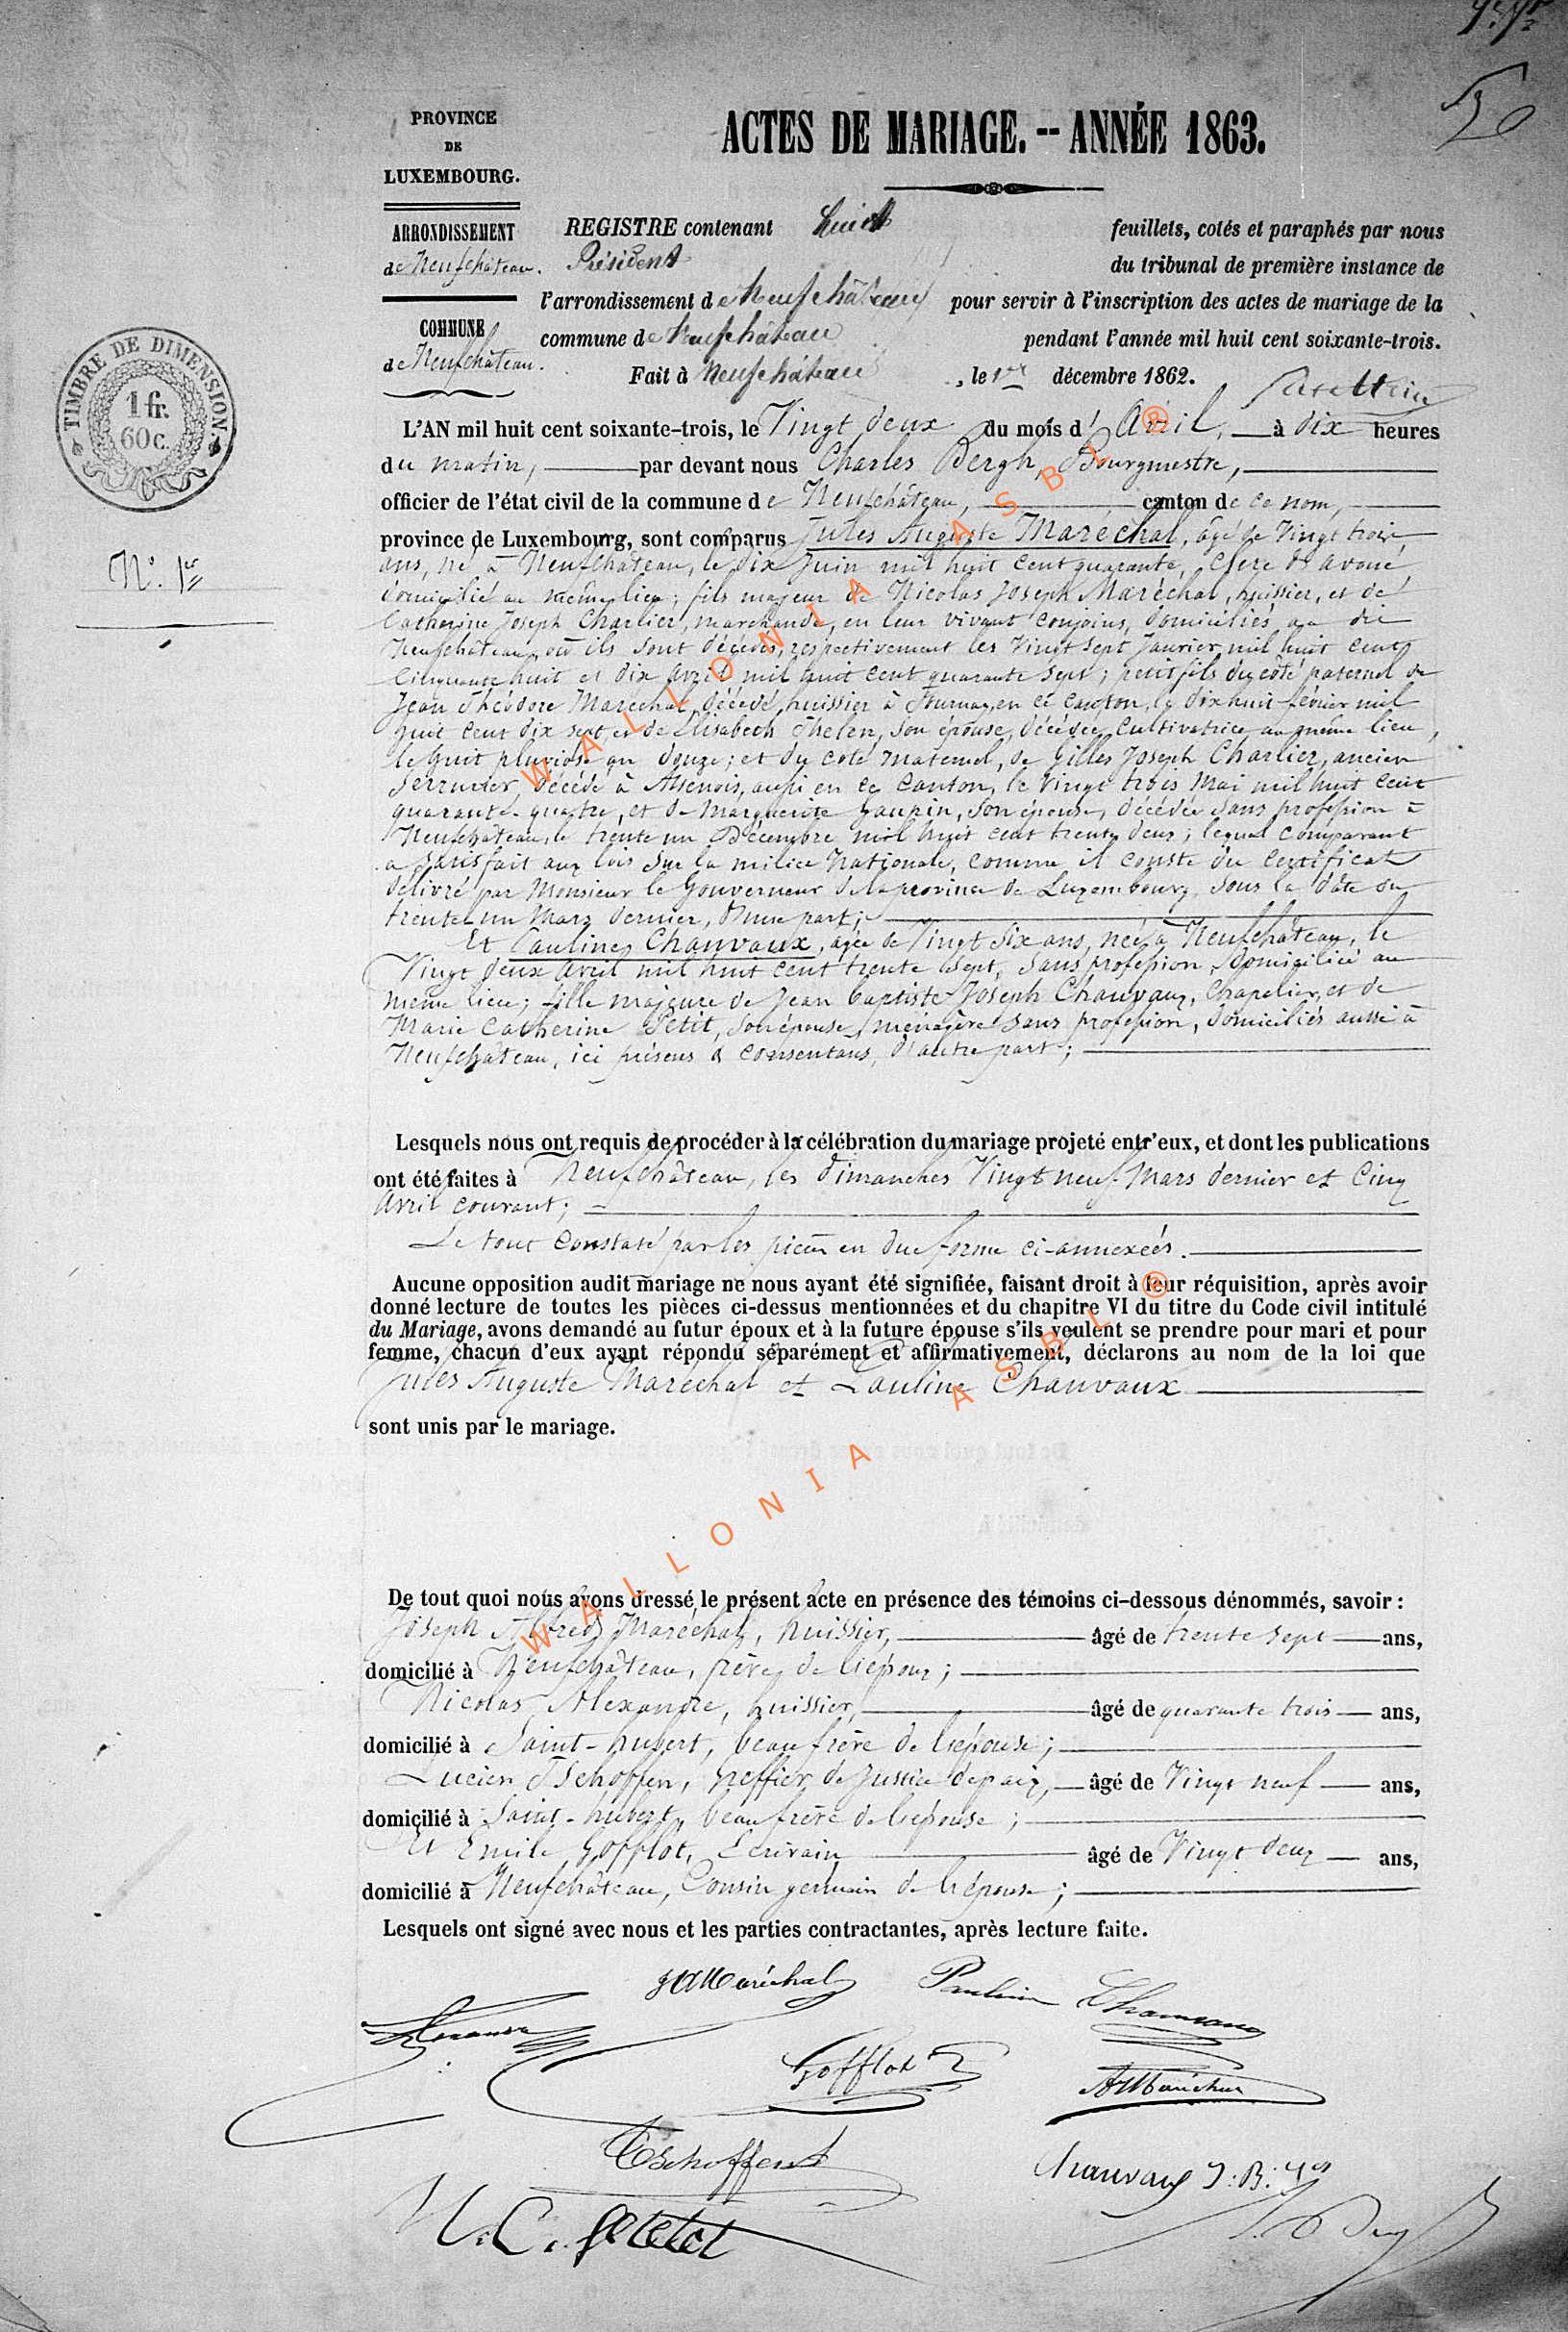 PROVINCE
DE
LUXEMBOURG.
ARRONDISSEMENT
de Neufchâteau.
COMMUNE
de Neufchâteau.
TIMBRE DE DIMENSION
1 fr.
60 c.
N°. 1er
50
ACTES DE MARIAGE. -- ANNÉE 1863.
REGISTRE contenant huit feuillets, cotés et paraphés par nous
Président du tribunal de première instance de
l'arrondissement de Neufchâteau pour servir à l'inscription des actes de mariage de la
commune de Neufchâteau pendant l'année mil huit cent soixante-trois.
Fait à Neufchâteau, le 1er décembre 1862.
L'AN mil huit cent soixante-trois, le Vingt deux du mois d'Avril, à dix heures
du matin, par devant nous Charles Bergh, Bourgmestre,
officier de l'état civil de la commune de Neufchâteau, canton de ce nom,
province de Luxembourg, sont comparus Jules Auguste Maréchal, âgé de Vingt trois
ans, né à Neufchâteau, le dix Juin mil huit cent quarante, Clerc d'avoué,
domicilié au même lieu; fils majeur de Nicolas Joseph Maréchal, huissier, et de
Catherine Joseph Charlier, marchande, en leur vivant conjoins, domiciliés au dit
Neufchâteau, où ils sont décédés, respectivement les Vingt sept Janvier mil huit cent
Cinquante huit et dix avril mil huit cent quarante sept; petit fils du côté paternel de
Jean Théodore Maréchal, décédé, huissier à Tournay, en ce canton, le dix huit février mil
huit cent dix sept, et de Elisabeth Thelen, son épouse, décédée, Cultivatrice au même lieu,
le huit pluviose an douze; et du coté maternel, de Gilles Joseph Charlier, ancien
Serrurier, décédé à Assenois, aussi en ce canton, le Vingt trois Mai mil huit cent
quarante-quatre, et de Marguerite Gaupin, son épouse, décédée sans profession à
Neufchâteau, le trente un Décembre mil huit cent trente deux; lequel comparant
a satisfait aux lois sur la milice nationale, comme il conste du Certificat
délivré par Monsieur le Gouverneur de la province de Luxembourg, sous la date du
trente un Mars dernier, d'une part;
Et Pauline Chauvaux, âgée de Vingt six ans, née à Neufchâteau, le
Vingt deux avril mil huit cent trente sept, sans profession, domiciliée au
même lieu; fille majeure de Jean baptiste Joseph Chauvaux, Chapelier, et de
Marie Catherine Petit, son épouse, ménagère sans profession, domiciliés aussi à
Neufchâteau, ici présens & consentans, d'autre part;
Lesquels nous ont requis de procéder à la célébration du mariage projeté entr'eux, et dont les publications
ont été faites à Neufchâteau, les dimanches Vingt neuf Mars dernier et Cinq
Avril courant;
Le tout constaté par les pièces en due forme ci-annexées.
Aucune opposition audit mariage ne nous ayant été signifiée, faisant droit à leur réquisition, après avoir
donné lecture de toutes les pièces ci-dessus mentionnées et du chapitre VI du titre du Code civil intitulé
du Mariage, avons demandé au futur époux et à la future épouse s'ils veulent se prendre pour mari et pour
femme, chacun d'eux ayant répondu séparément et affirmativement, déclarons au nom de la loi que
Jules Auguste Maréchal et Pauline Chauvaux
sont unis par le mariage.
De tout quoi nous avons dressé le présent acte en présence des témoins ci-dessous dénommés, savoir :
Joseph Alfred Maréchal, huissier, âgé de trente sept ans,
domicilié à Neufchâteau, frère de l'époux;
Nicolas Alexandre, huissier, âgé de quarante trois ans,
domicilié à Saint-hubert, beau frère de l'épouse;
Lucien Tschoffen, greffier de Justice de paix, âgé de Vingt neuf ans,
domicilié à Saint-hubert, beau frère de l'épouse;
Et Emile Gofflot, Ecrivain âgé de Vingt deux ans,
domicilié à Neufchâteau, Cousin germain de l'épouse;
Lesquels ont signé avec nous et les parties contractantes, après lecture faite.
JAMaréchal Pauline Chauvaux
Gofflot E AMaréchal
Tschoffen
Chauvaux J. B. Jh
M. C. petit
WALLONIA ASBL ®
WALLONIA ASBL ®